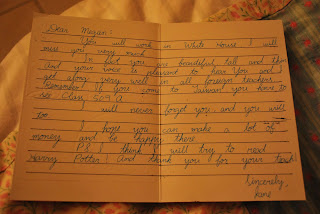 Dear Megan:
You will work in White House I will
miss you very much.
In fact you are beautiful, tall and
and your voice is pleasant to hear You and I
get along very well in all foreign teachers.
Remember! If you going to Taiwan you have to
see Class 509
I will never forget you and you will
too.
I hope you can make a lot of
money and be happy there
P.S. I think I will try to read
Harry Potter! And thank you for your
Sincerely,
Jane